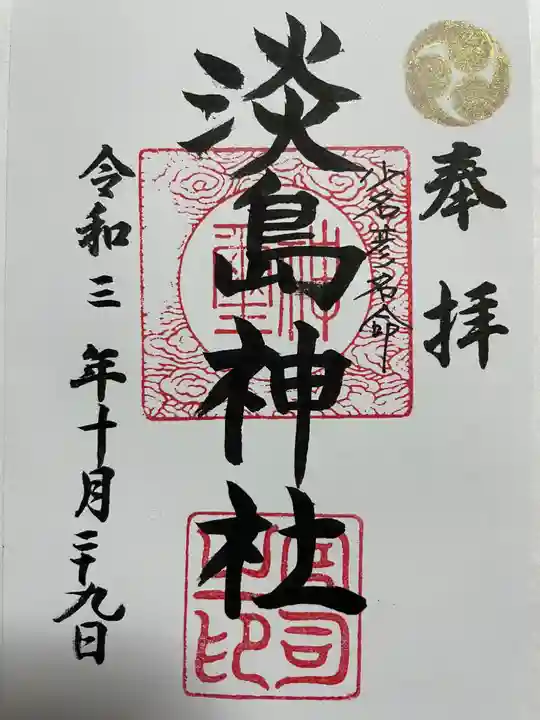 奉拝
少名彦名命
淡島神社
令和三年十月二十九日
宮司之印